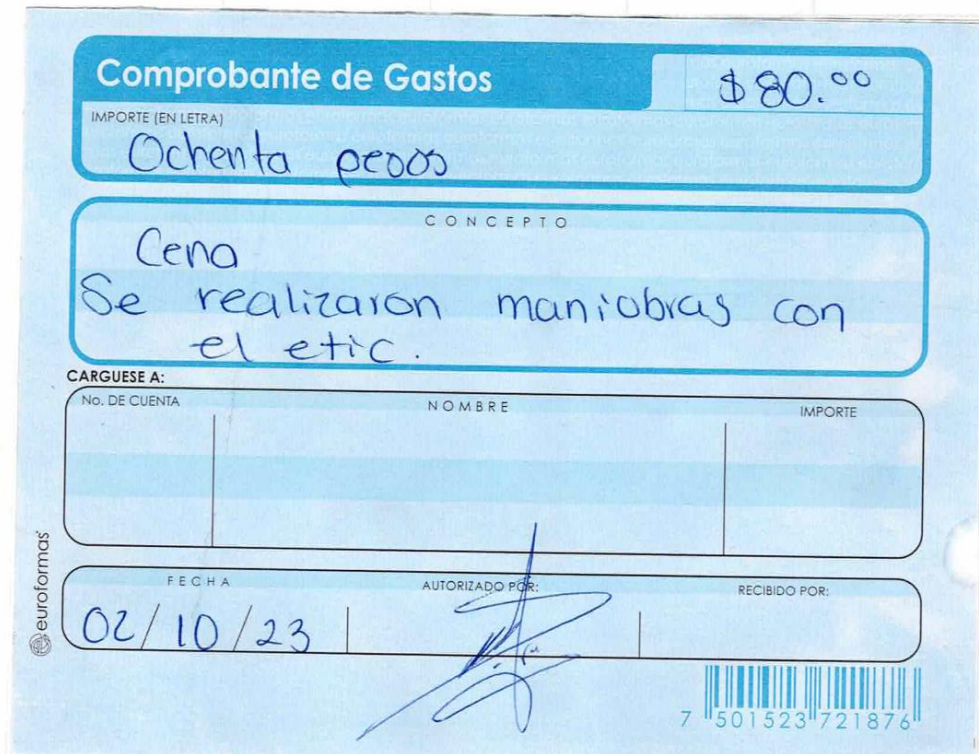 Comprobante de Gastos
$80.00
IMPORTE (EN LETRA)
Ochenta pesos
CONCEPTO
Cena
Se realizaron maniobras con
el etic.
CARGUESE A:
No. DE CUENTA
NOMBRE
IMPORTE
FECHA
AUTORIZADO POR:
RECIBIDO POR:
02/10/23
euroformas
7 501523 721876